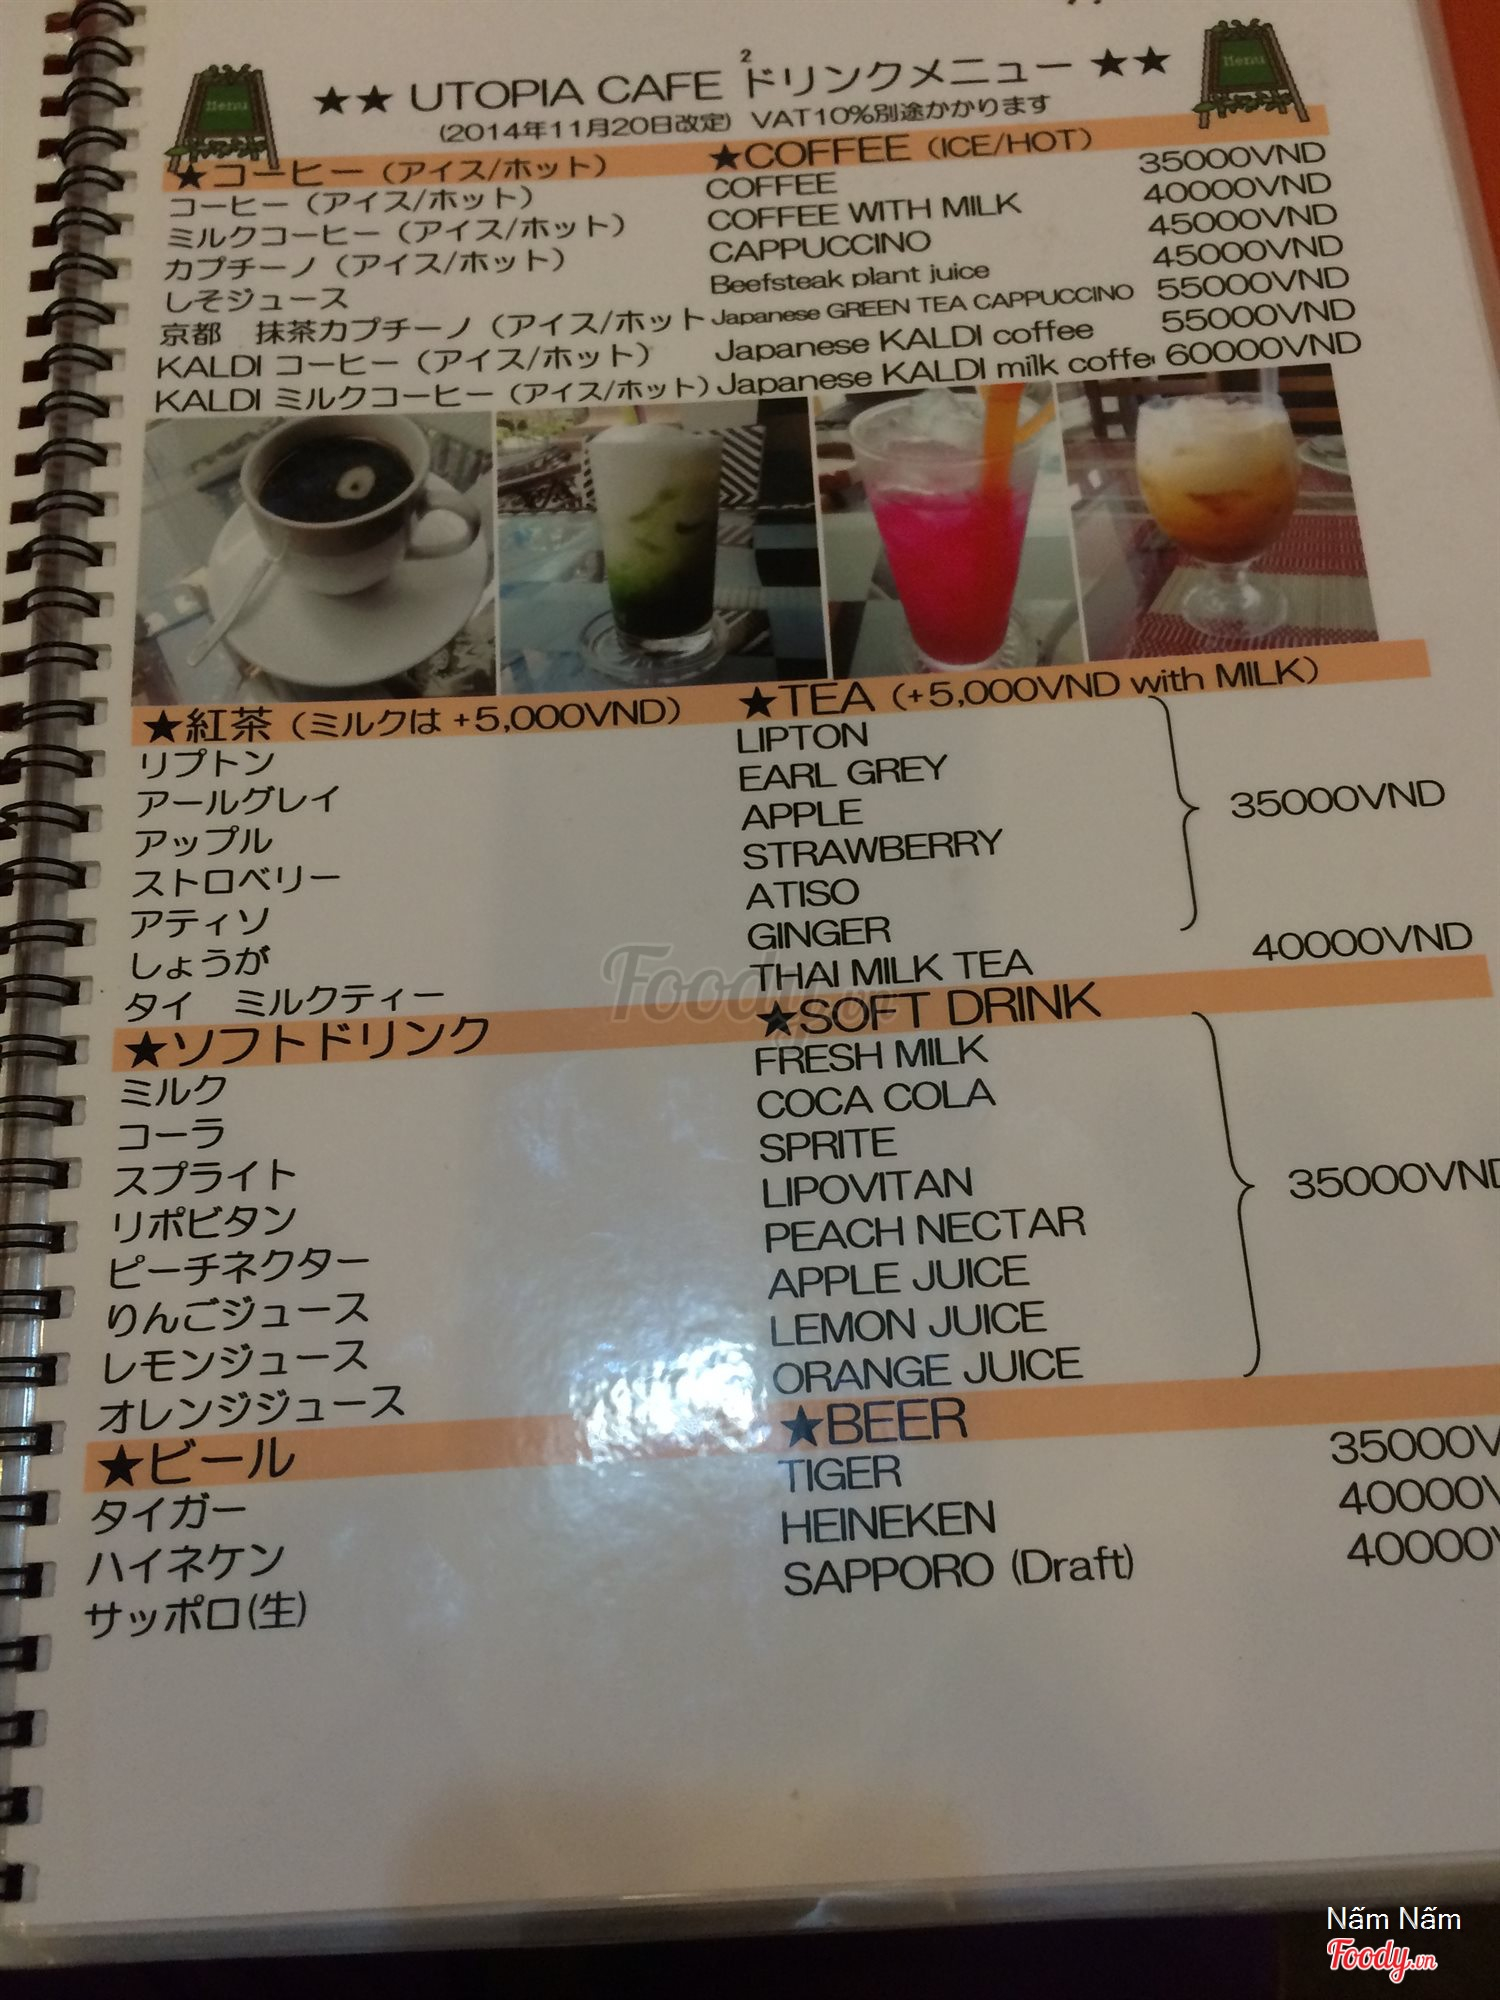 Menu
Menu
2
★★ UTOPIA CAFE ドリンクメニュー ★★
(2014年11月20日改定) VAT10%別途かかります
★コーヒー（アイス/ホット） ★COFFEE (ICE/HOT)
コーヒー（アイス/ホット） COFFEE 35000VND
ミルクコーヒー（アイス/ホット） COFFEE WITH MILK 40000VND
カプチーノ（アイス/ホット） CAPPUCCINO 45000VND
しそジュース Beefsteak plant juice 45000VND
京都　抹茶カプチーノ（アイス/ホット Japanese GREEN TEA CAPPUCCINO 55000VND
KALDI コーヒー（アイス/ホット） Japanese KALDI coffee 55000VND
KALDI ミルクコーヒー（アイス/ホット） Japanese KALDI milk coffe 60000VND
★紅茶（ミルクは +5,000VND） ★TEA (+5,000VND with MILK)
リプトン LIPTON
アールグレイ EARL GREY
アップル APPLE 35000VND
ストロベリー STRAWBERRY
アティソ ATISO
しょうが GINGER
タイ　ミルクティー THAI MILK TEA 40000VND
★ソフトドリンク ★SOFT DRINK
ミルク FRESH MILK
コーラ COCA COLA
スプライト SPRITE
リポビタン LIPOVITAN 35000VND
ピーチネクター PEACH NECTAR
りんごジュース APPLE JUICE
レモンジュース LEMON JUICE
オレンジジュース ORANGE JUICE
★ビール ★BEER
タイガー TIGER 35000V
ハイネケン HEINEKEN 40000V
サッポロ(生) SAPPORO (Draft) 40000V
Foody.vn
Nấm Nấm
Foody.vn